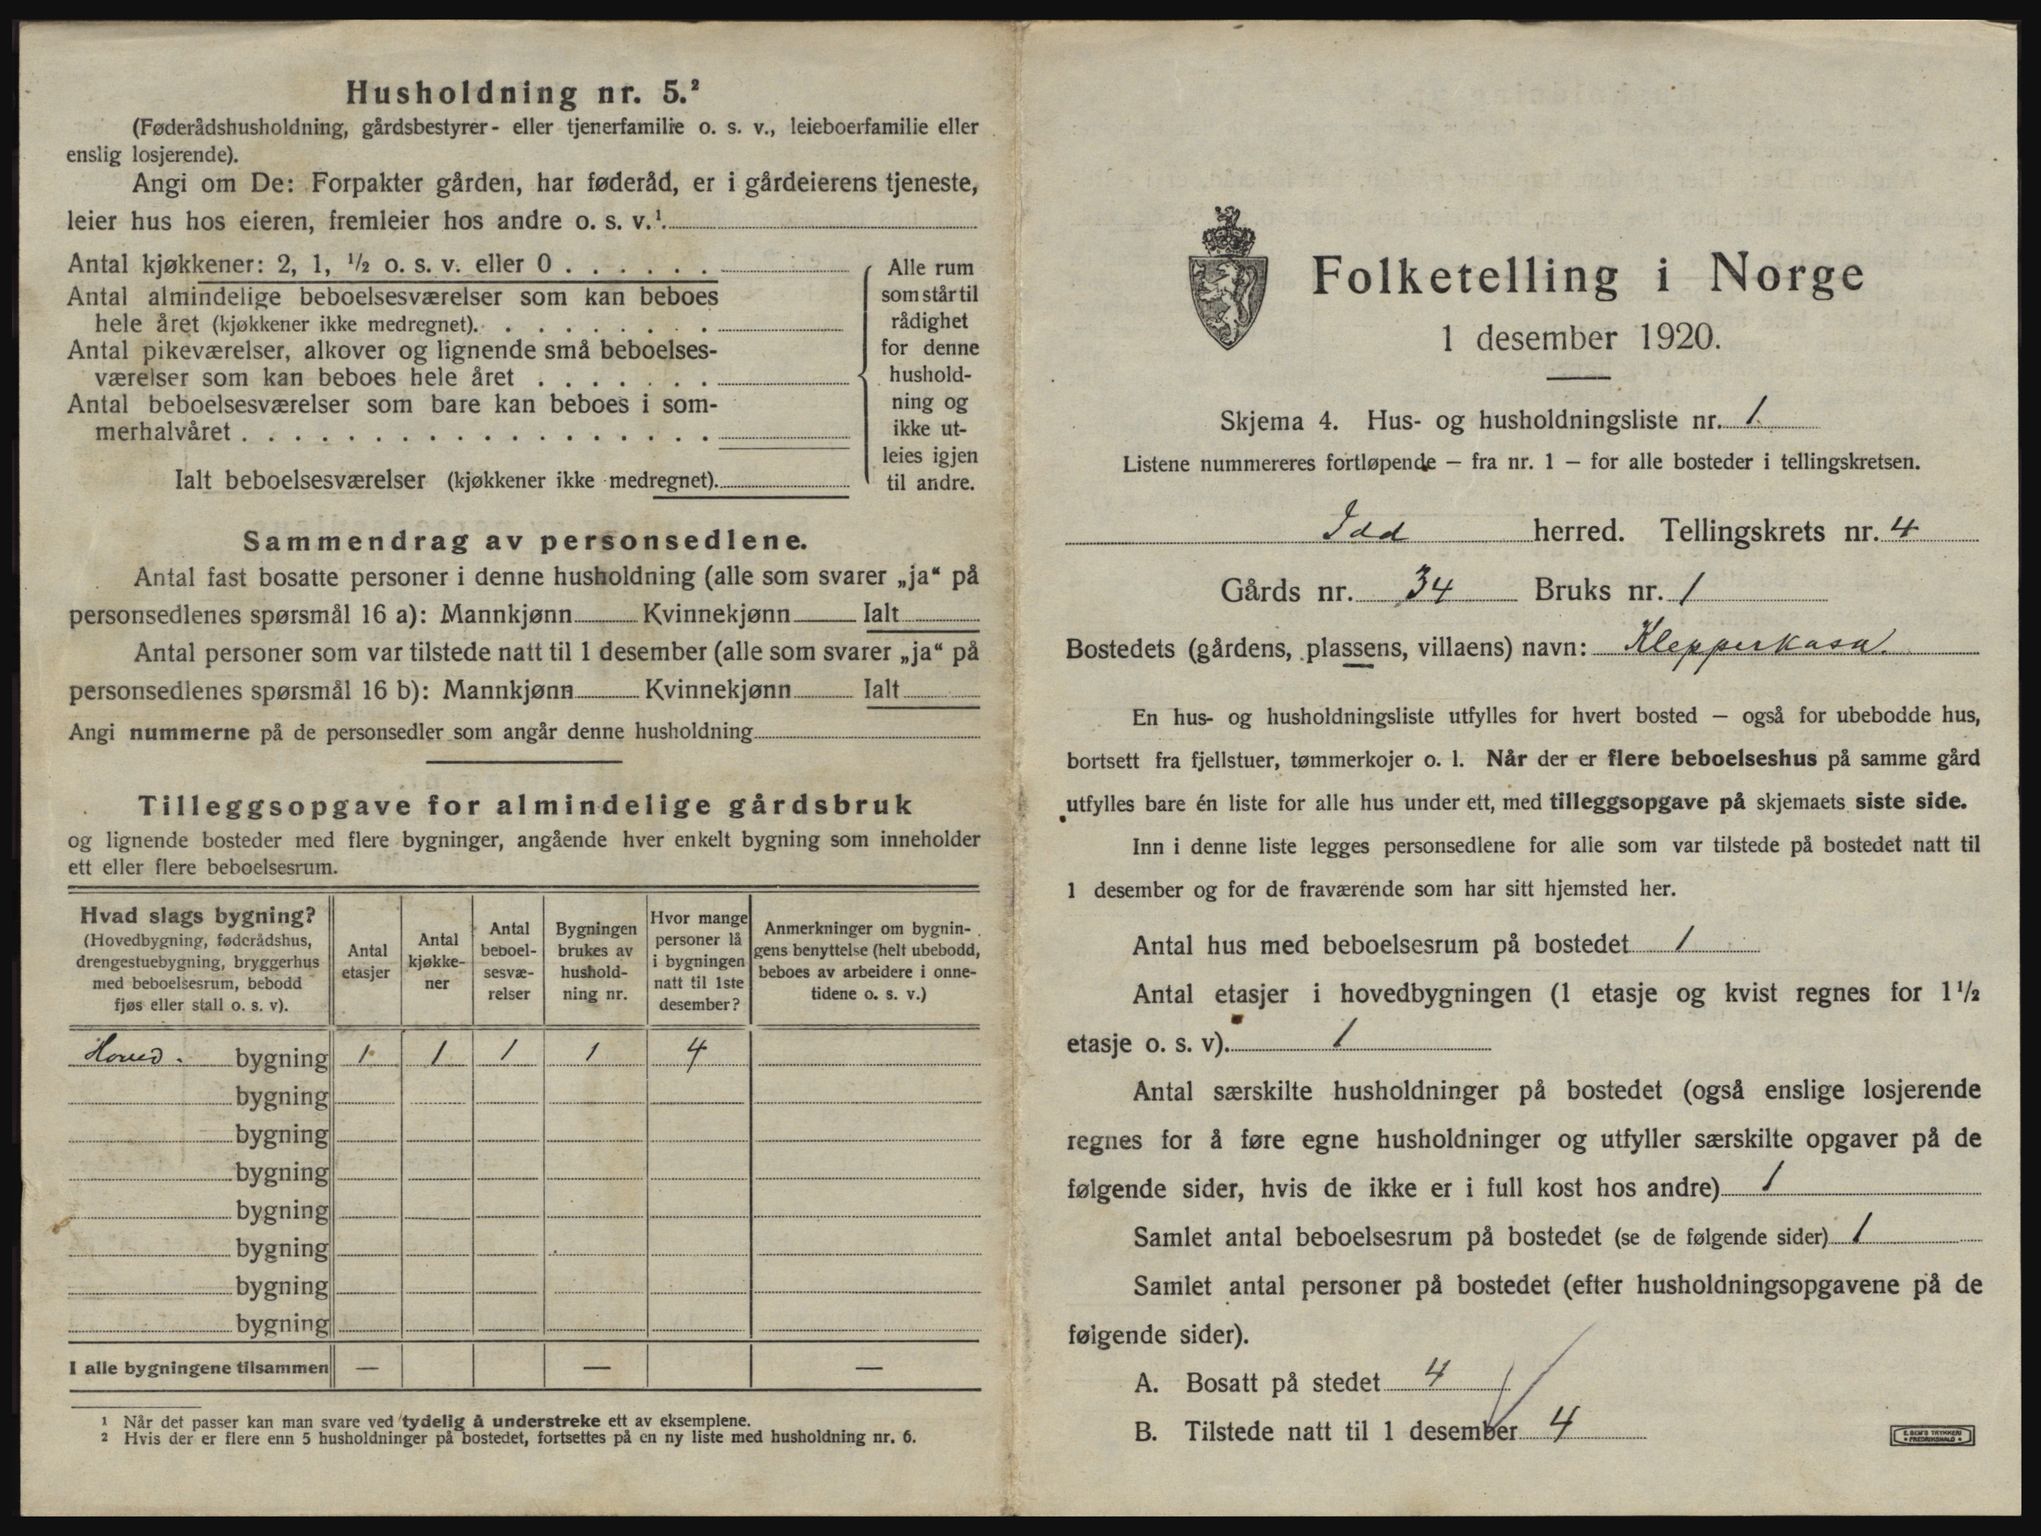 Husholdning nr. 5.²
(Føderådshusholdning, gårdsbestyrer- eller tjenerfamilie o. s. v., leieboerfamilie eller
enslig losjerende).
Angi om De: Forpakter gården, har føderåd, er i gårdeierens tjeneste,
leier hus hos eieren, fremleier hos andre o. s. v.¹.
Antal kjøkkener: 2, 1, ½ o. s. v. eller 0 . . . . . .
Antal almindelige beboelsesværelser som kan beboes
hele året (kjøkkener ikke medregnet). . . . . . . . .
Antal pikeværelser, alkover og lignende små beboelses-
værelser som kan beboes hele året . . . . . . .
Antal beboelsesværelser som bare kan beboes i som-
merhalvåret . . . . . . . . . . . . . . . . . .
Ialt beboelsesværelser (kjøkkener ikke medregnet).
Alle rum
som står til
rådighet
for denne
hushold-
ning og
ikke ut-
leies igjen
til andre.
Sammendrag av personsedlene.
Antal fast bosatte personer i denne husholdning (alle som svarer „ja“ på
personsedlenes spørsmål 16 a): Mannkjønn Kvinnekjønn Ialt
Antal personer som var tilstede natt til 1 desember (alle som svarer „ja“ på
personsedlenes spørsmål 16 b): Mannkjønn Kvinnekjønn Ialt
Angi nummerne på de personsedler som angår denne husholdning
Tilleggsopgave for almindelige gårdsbruk
og lignende bosteder med flere bygninger, angående hver enkelt bygning som inneholder
ett eller flere beboelsesrum.
Hvad slags bygning?
(Hovedbygning, føderådshus,
drengestuebygning, bryggerhus
med beboelsesrum, bebodd
fjøs eller stall o. s. v).
Antal
etasjer
Antal
kjøkke-
ner
Antal
beboel-
sesvæ-
relser
Bygningen
brukes av
hushold-
ning nr.
Hvor mange
personer lå
i bygningen
natt til 1ste
desember?
Anmerkninger om bygnin-
gens benyttelse (helt ubebodd,
beboes av arbeidere i onne-
tidene o. s. v.)
Hoved. bygning 1 1 1 1 4
bygning
bygning
bygning
bygning
bygning
bygning
bygning
I alle bygningene tilsammen — — —
¹ Når det passer kan man svare ved tydelig å understreke ett av eksemplene.
² Hvis der er flere enn 5 husholdninger på bostedet, fortsettes på en ny liste med husholdning nr. 6.
Folketelling i Norge
1 desember 1920.
Skjema 4. Hus- og husholdningsliste nr. 1
Listene nummereres fortløpende — fra nr. 1 — for alle bosteder i tellingskretsen.
Idd herred. Tellingskrets nr. 4
Gårds nr. 34 Bruks nr. 1
Bostedets (gårdens, plassens, villaens) navn: Klepperkasa.
En hus- og husholdningsliste utfylles for hvert bosted — også for ubebodde hus,
bortsett fra fjellstuer, tømmerkojer o. l. Når der er flere beboelseshus på samme gård
utfylles bare én liste for alle hus under ett, med tilleggsopgave på skjemaets siste side.
Inn i denne liste legges personsedlene for alle som var tilstede på bostedet natt til
1 desember og for de fraværende som har sitt hjemsted her.
Antal hus med beboelsesrum på bostedet 1
Antal etasjer i hovedbygningen (1 etasje og kvist regnes for 1½
etasje o. s. v). 1
Antal særskilte husholdninger på bostedet (også enslige losjerende
regnes for å føre egne husholdninger og utfyller særskilte opgaver på de
følgende sider, hvis de ikke er i full kost hos andre) 1
Samlet antal beboelsesrum på bostedet (se de følgende sider) 1
Samlet antal personer på bostedet (efter husholdningsopgavene på de
følgende sider).
A. Bosatt på stedet 4
B. Tilstede natt til 1 desember 4
E. SEM'S TRYKKERI
FREDRIKSHALD